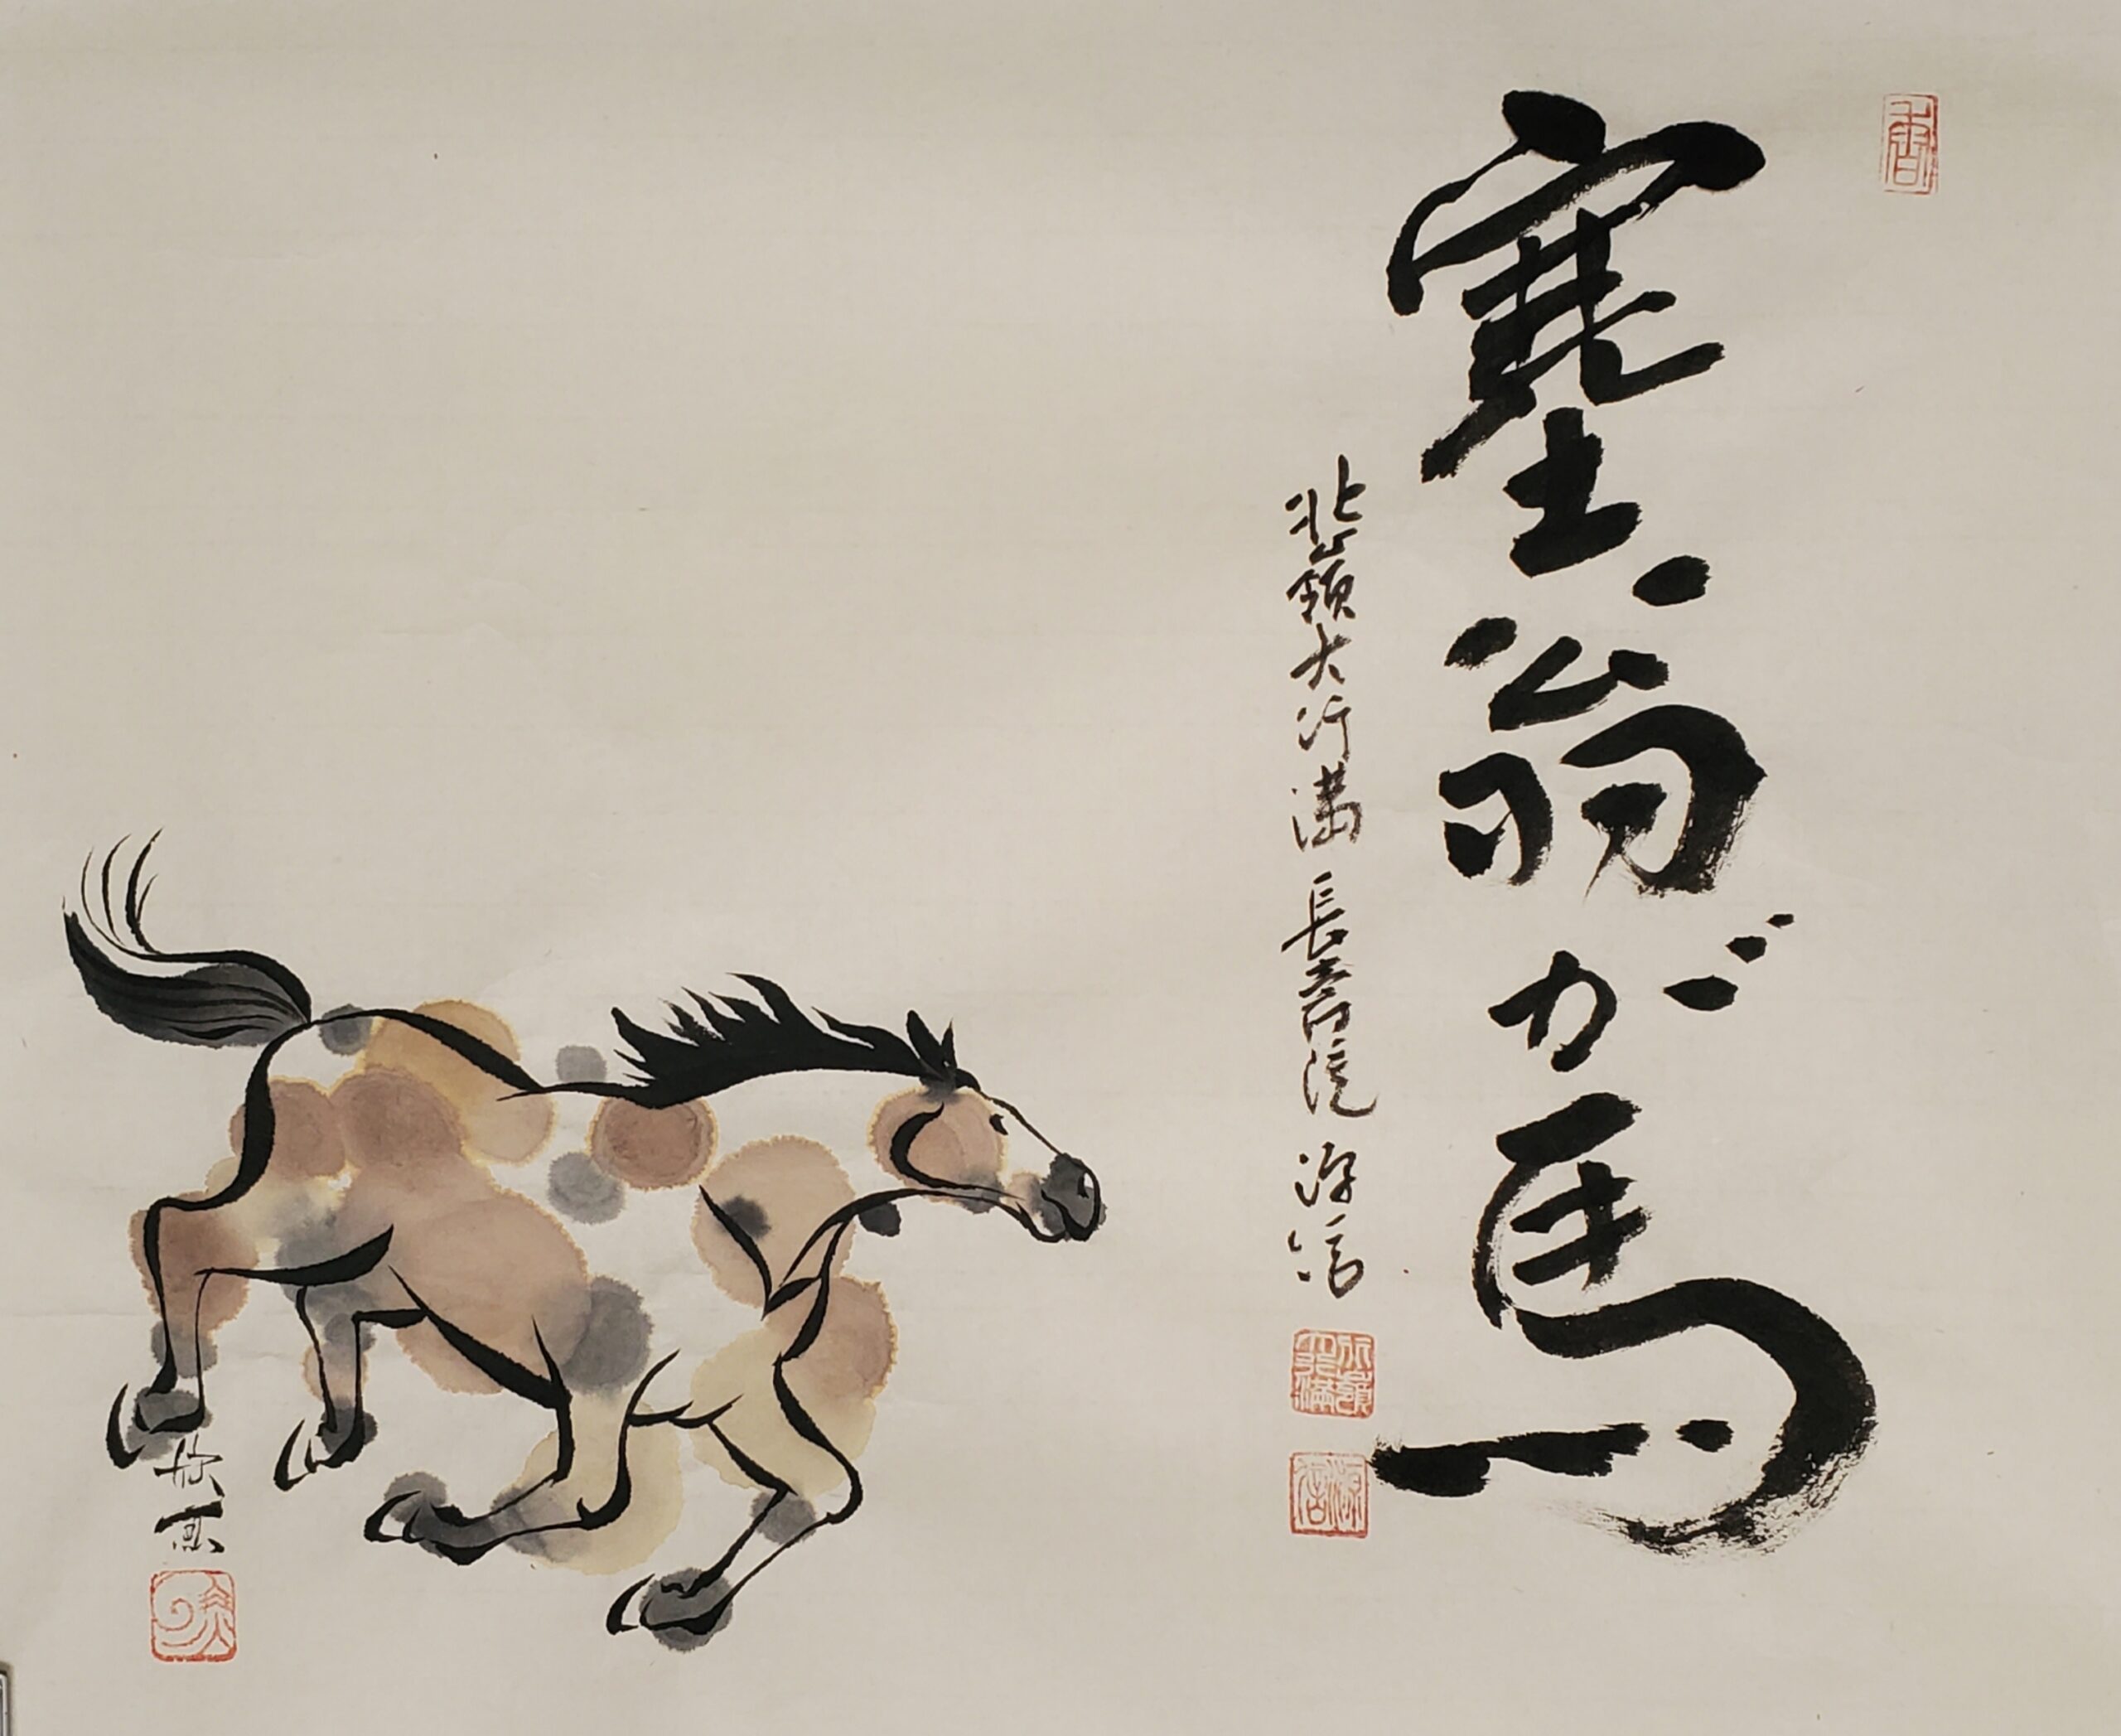 塞翁が馬
北嶺大行満 長寿院 源信